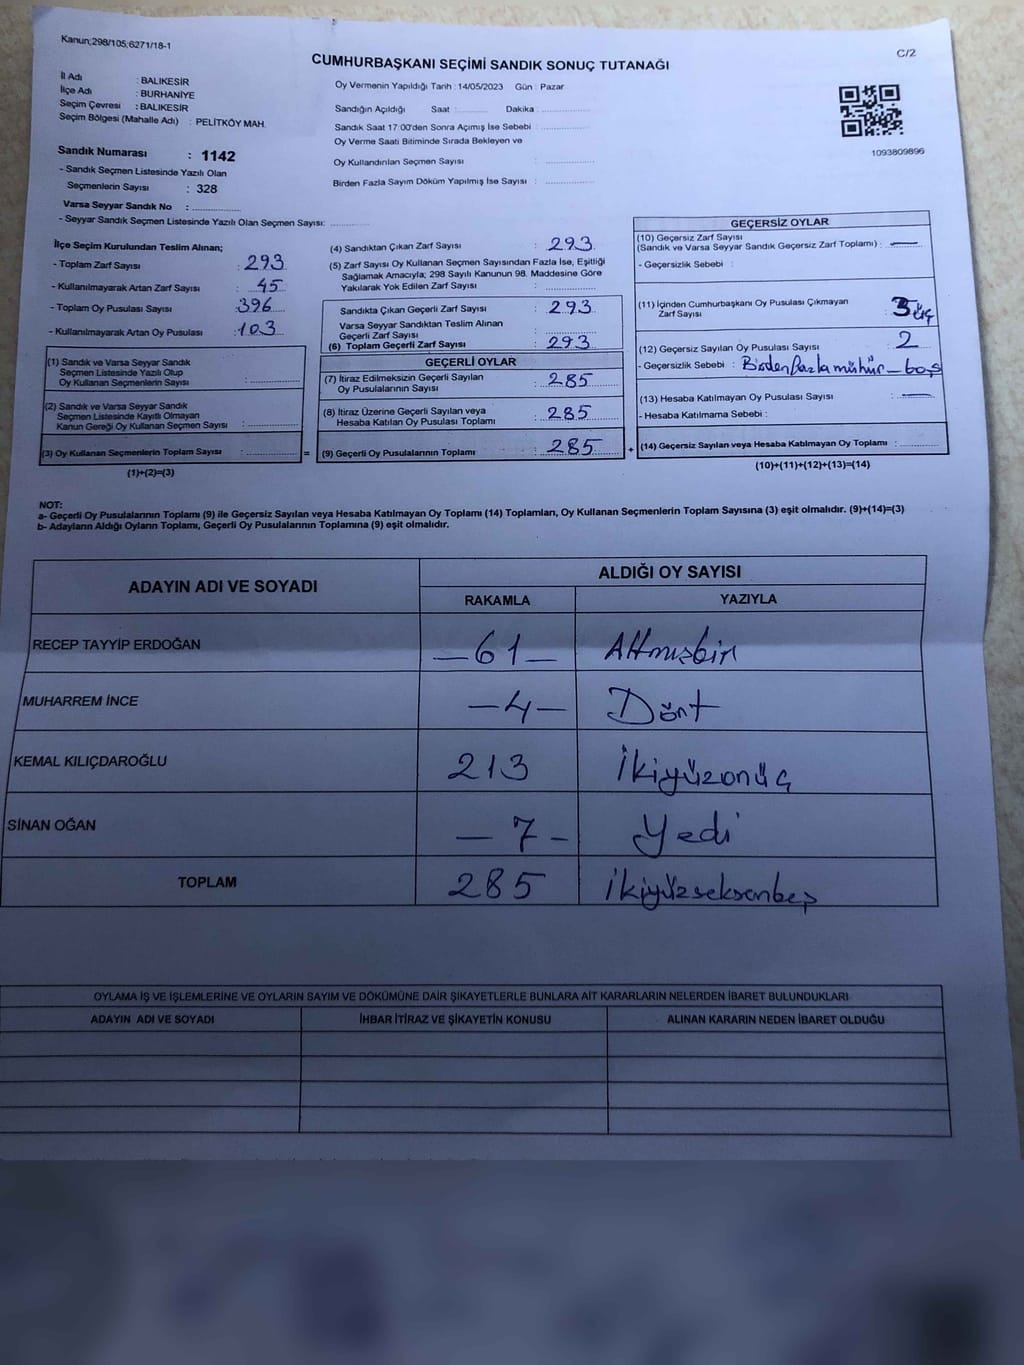 Kanun;298/105;6271/18-1
C/2
CUMHURBAŞKANI SEÇİMİ SANDIK SONUÇ TUTANAĞI
İl Adı : BALIKESİR
İlçe Adı : BURHANİYE
Seçim Çevresi : BALIKESİR
Seçim Bölgesi (Mahalle Adı) : PELİTKÖY MAH.
Sandık Numarası : 1142
- Sandık Seçmen Listesinde Yazılı Olan
Seçmenlerin Sayısı : 328
Varsa Seyyar Sandık No :
- Seyyar Sandık Seçmen Listesinde Yazılı Olan Seçmen Sayısı:
Oy Vermenin Yapıldığı Tarih : 14/05/2023 Gün : Pazar
Sandığın Açıldığı Saat : Dakika :
Sandık Saat 17:00'den Sonra Açımış İse Sebebi :
Oy Verme Saati Bitiminde Sırada Bekleyen ve
Oy Kullandırılan Seçmen Sayısı :
Birden Fazla Sayım Döküm Yapılmış İse Sayısı :
1093809896
İlçe Seçim Kurulundan Teslim Alınan;
- Toplam Zarf Sayısı : 293
- Kullanılmayarak Artan Zarf Sayısı : 45
- Toplam Oy Pusulası Sayısı : 396
- Kullanılmayarak Artan Oy Pusulası : 103
(1) Sandık ve Varsa Seyyar Sandık
Seçmen Listesinde Yazılı Olup
Oy Kullanan Seçmenlerin Sayısı :
(2) Sandık ve Varsa Seyyar Sandık
Seçmen Listesinde Kayıtlı Olmayan
Kanun Gereği Oy Kullanan Seçmen Sayısı :
(3) Oy Kullanan Seçmenlerin Toplam Sayısı : =
(1)+(2)=(3)
(4) Sandıktan Çıkan Zarf Sayısı : 293
(5) Zarf Sayısı Oy Kullanan Seçmen Sayısından Fazla İse, Eşitliği
Sağlamak Amacıyla; 298 Sayılı Kanunun 98. Maddesine Göre
Yakılarak Yok Edilen Zarf Sayısı :
Sandıkta Çıkan Geçerli Zarf Sayısı : 293
Varsa Seyyar Sandıktan Teslim Alınan
Geçerli Zarf Sayısı :
(6) Toplam Geçerli Zarf Sayısı : 293
GEÇERLİ OYLAR
(7) İtiraz Edilmeksizin Geçerli Sayılan
Oy Pusulalarının Sayısı : 285
(8) İtiraz Üzerine Geçerli Sayılan veya
Hesaba Katılan Oy Pusulası Toplamı : 285
(9) Geçerli Oy Pusulalarının Toplamı : 285 +
GEÇERSİZ OYLAR
(10) Geçersiz Zarf Sayısı
(Sandık ve Varsa Seyyar Sandık Geçersiz Zarf Toplamı) : —
- Geçersizlik Sebebi :
(11) İçinden Cumhurbaşkanı Oy Pusulası Çıkmayan
Zarf Sayısı 3 üç
(12) Geçersiz Sayılan Oy Pusulası Sayısı : 2
- Geçersizlik Sebebi : Birden fazla mühür – boş
(13) Hesaba Katılmayan Oy Pusulası Sayısı : —
- Hesaba Katılmama Sebebi :
(14) Geçersiz Sayılan veya Hesaba Katılmayan Oy Toplamı :
(10)+(11)+(12)+(13)=(14)
NOT:
a- Geçerli Oy Pusulalarının Toplamı (9) ile Geçersiz Sayılan veya Hesaba Katılmayan Oy Toplamı (14) Toplamları, Oy Kullanan Seçmenlerin Toplam Sayısına (3) eşit olmalıdır. (9)+(14)=(3)
b- Adayların Aldığı Oyların Toplamı, Geçerli Oy Pusulalarının Toplamına (9) eşit olmalıdır.
ADAYIN ADI VE SOYADI
ALDIĞI OY SAYISI
RAKAMLA YAZIYLA
RECEP TAYYİP ERDOĞAN —61— Altmışbir
MUHARREM İNCE —4— Dört
KEMAL KILIÇDAROĞLU 213 İkiyüzonüç
SİNAN OĞAN —7— Yedi
TOPLAM 285 İkiyüzseksenbeş
OYLAMA İŞ VE İŞLEMLERİNE VE OYLARIN SAYIM VE DÖKÜMÜNE DAİR ŞİKAYETLERLE BUNLARA AİT KARARLARIN NELERDEN İBARET BULUNDUKLARI
ADAYIN ADI VE SOYADI İHBAR İTİRAZ VE ŞİKAYETİN KONUSU ALINAN KARARIN NEDEN İBARET OLDUĞU